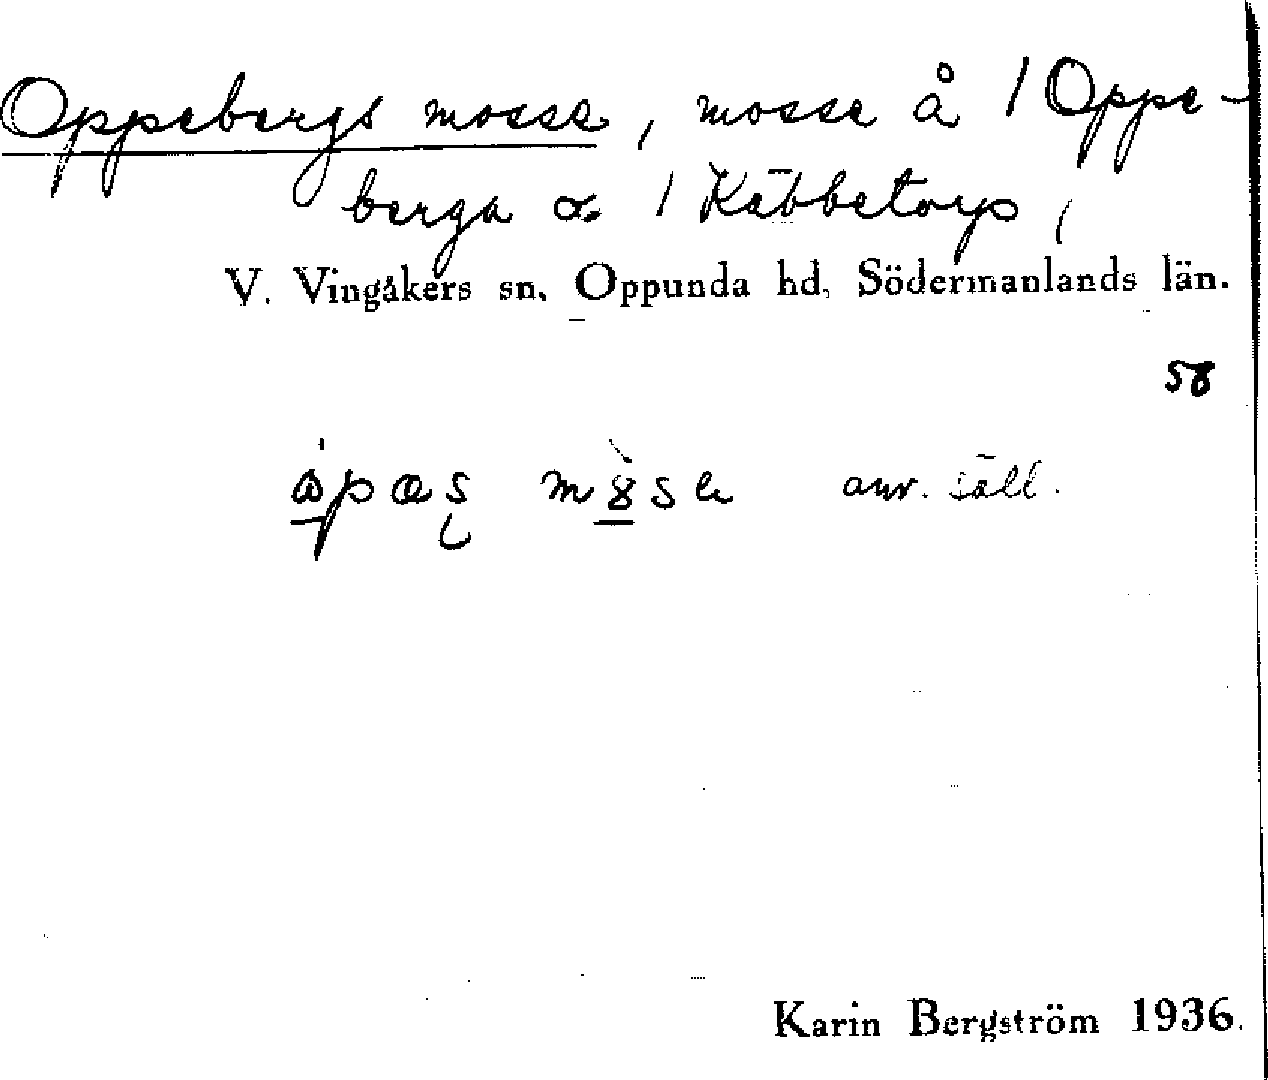 Oppebergs mosse, mosse å 1 Oppe-
berga o. 1 Käbbetorp,
V. Vingåkers sn, Oppunda hd, Södermanlands län.
58
anv. säll.
Karin Bergström 1936.